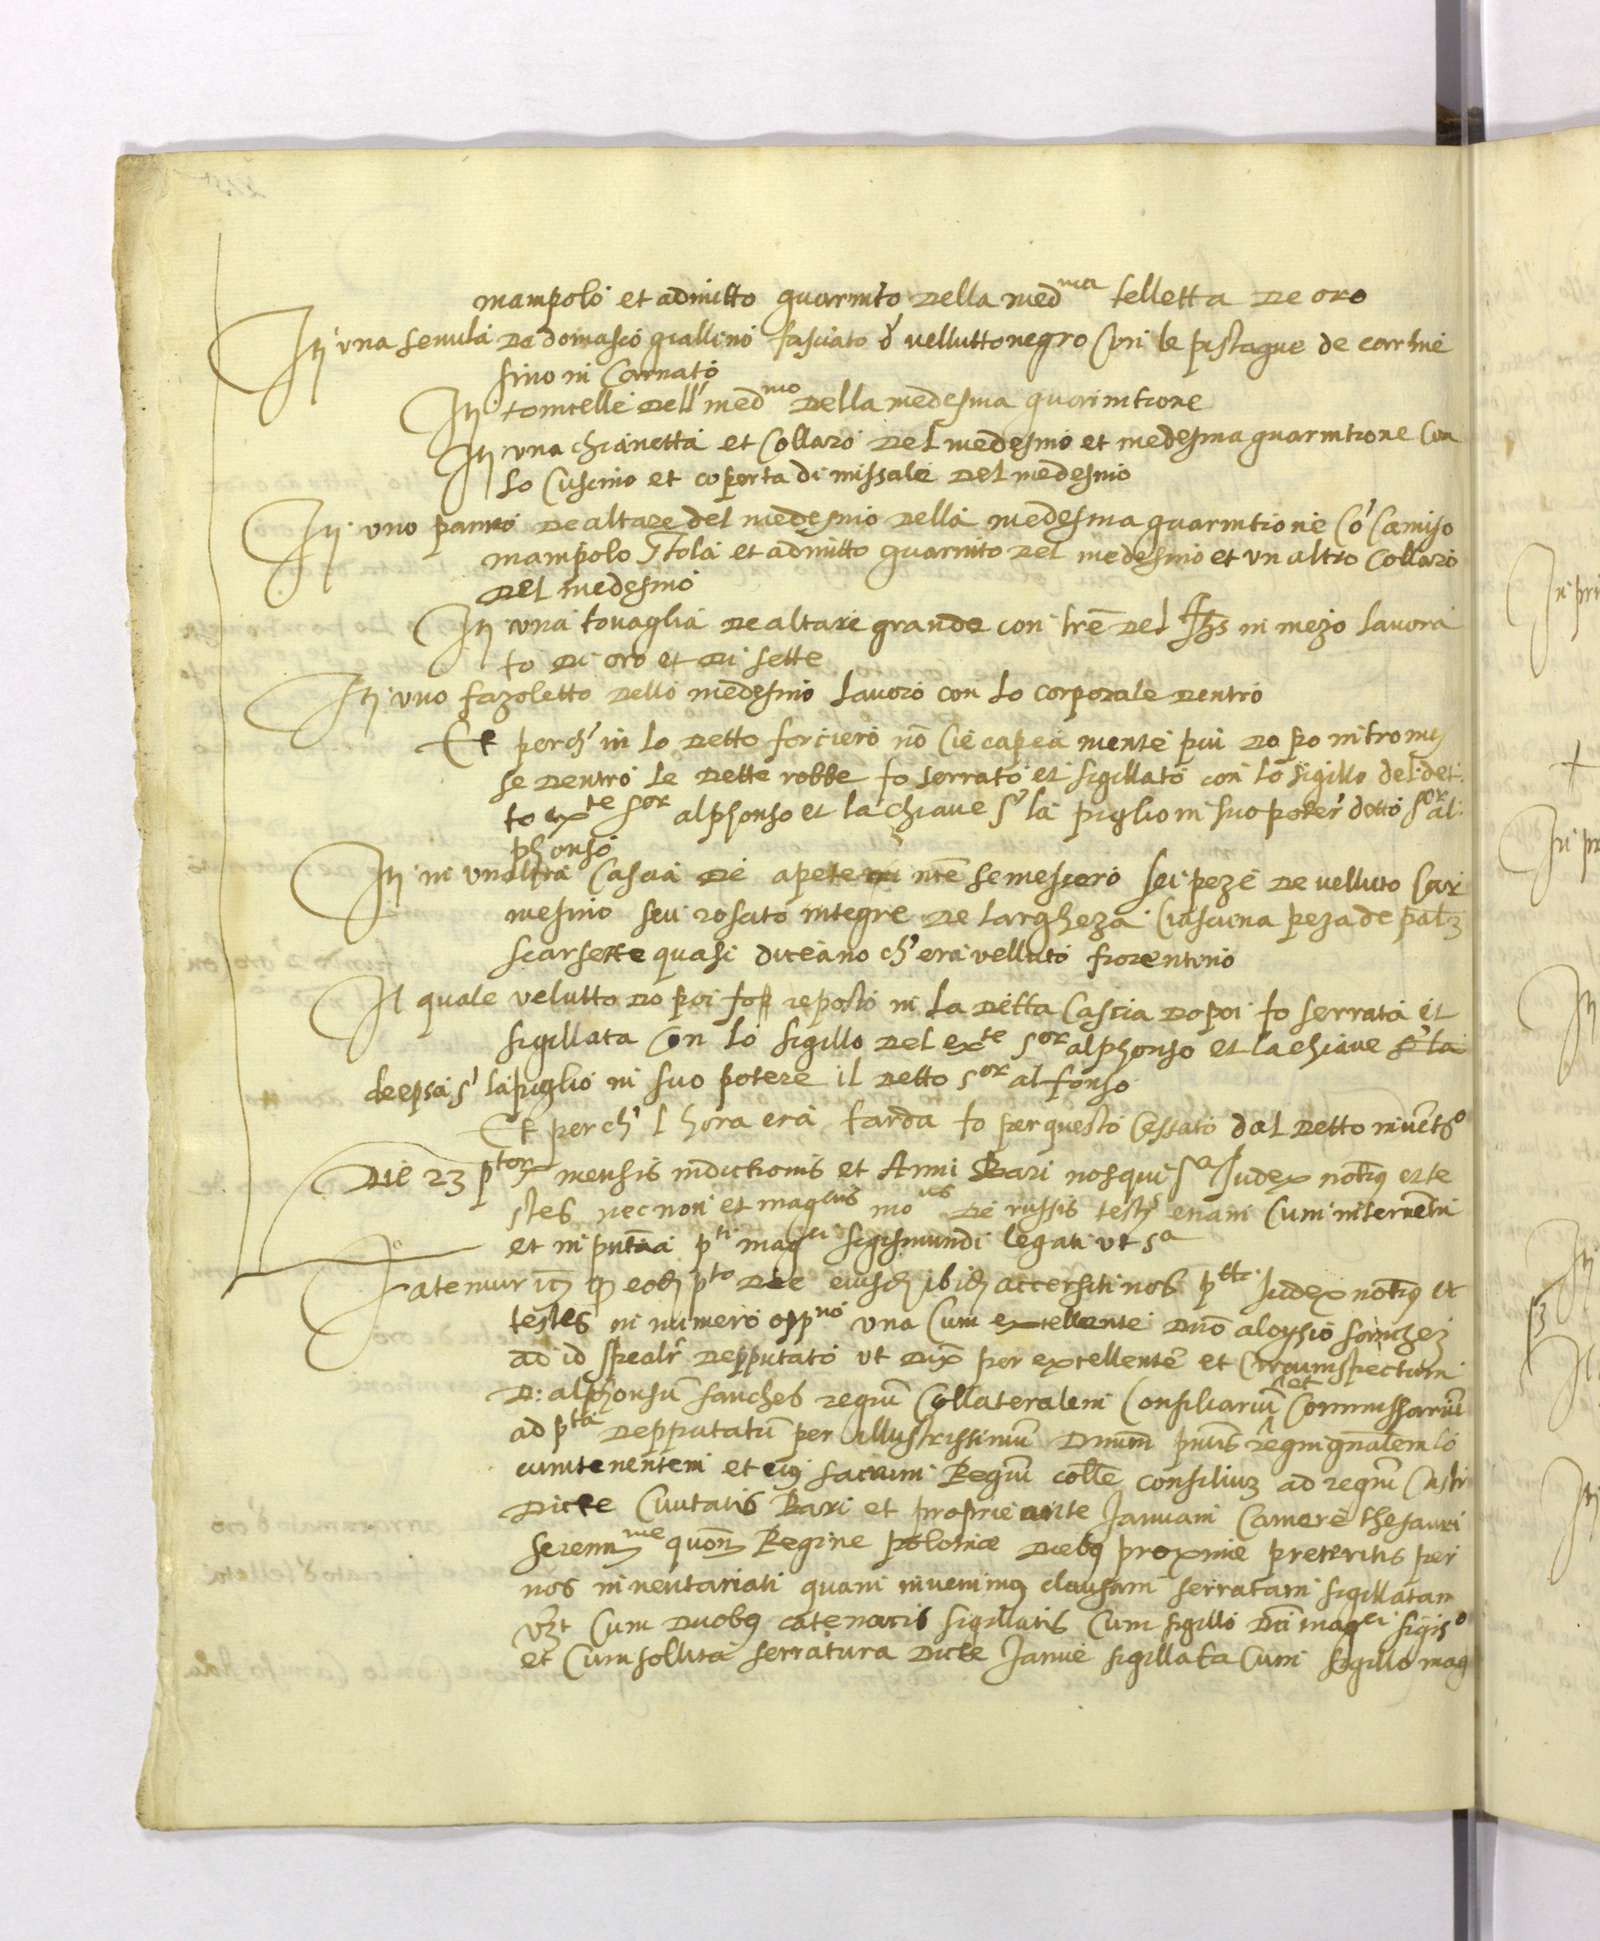 mampolo et admitto guarnito della med^ma telletta de oro
It una senula de domasco giallino fasciato d' velluttonegro con le pistague de carme
sino in Carnato
It tonicelle dell' med^mo della medesma guarintione
It una chianetta et Collaro del medesmo et medesma guarntione con
lo Cuscino et coperta di missale del medesmo
It uno panno de altare del medesmo della medesma guarntione co' Camiso
mampolo stola et admitto guarnito del medesmo et un altro Collaro
del medesmo
It una tovaglia de altare grande con tre del Jhs in mezo lavora
to di oro et di sette
It uno fazoletto dello medesmo lavoro con lo corporale dentro
Et perch' in lo detto forciero no cie capea mente piu dopo intromis
se dentro le dette robbe fo serrato et sigillato con lo sigillo del det:
to ex^te s^or alphonso et la chiave s' la piglio in suo poter' detto s^or al:
phonso
It in un altra Cascia de apete nte se mescero sei peze de velluto Car
mesino seu rosato integre de largheza Ciascuna peza de pal
scarsette quasi diceano ch' era velluto fiorentino
Il quale velutto dopoi fo reposto in la detta Cascia dopoi fo serrata et
sigillata Con lo sigillo del ex^te s^or alphonso et la chiave s' la
de epsa s' la piglio in suo potere il detto s^or alfonso
Et perch' l hora era tarda fo per questo Cessato dal detto invet^o
Die 23 p^tor mensis indictionis et Anni Bari nos qui s^a Judex notus et te
stes necnon et mag^cus mo^us de russis testis etiam Cum interventu
et in putia p^ti mag^ci sigismundi legati ut s^a
Fatemur q eod p^to die eiusd ibid accersiti nos p^tti Judex notus et
testes in numero opp^no una Cum excellente Dno aloysio sanchez
ad id spealr depputato ut dix per excellente et Circumspectum
D: alphonsu sanches regiu Collateralem Consiliariu et Commissariu
ad p^ta depputatu per illustrissimu Dnum puis regni gnalem lo
cumtenentem et eius sacrum Regiu colle consiliu ad regiu Castr
Dicte Civitatis Bari et proprie ante Januam Camere thesauri
serenis^me quon Regine polonie diebus proxime preteritis per
nos inventariati quam invenimus clausam serratam sigillatam
vz Cum duobus catenaciis sigillatis Cum sigillo Dci mag^ci sigis^o
et Cum sollita serratura dicte Janue sigillata Cum sigillo mag